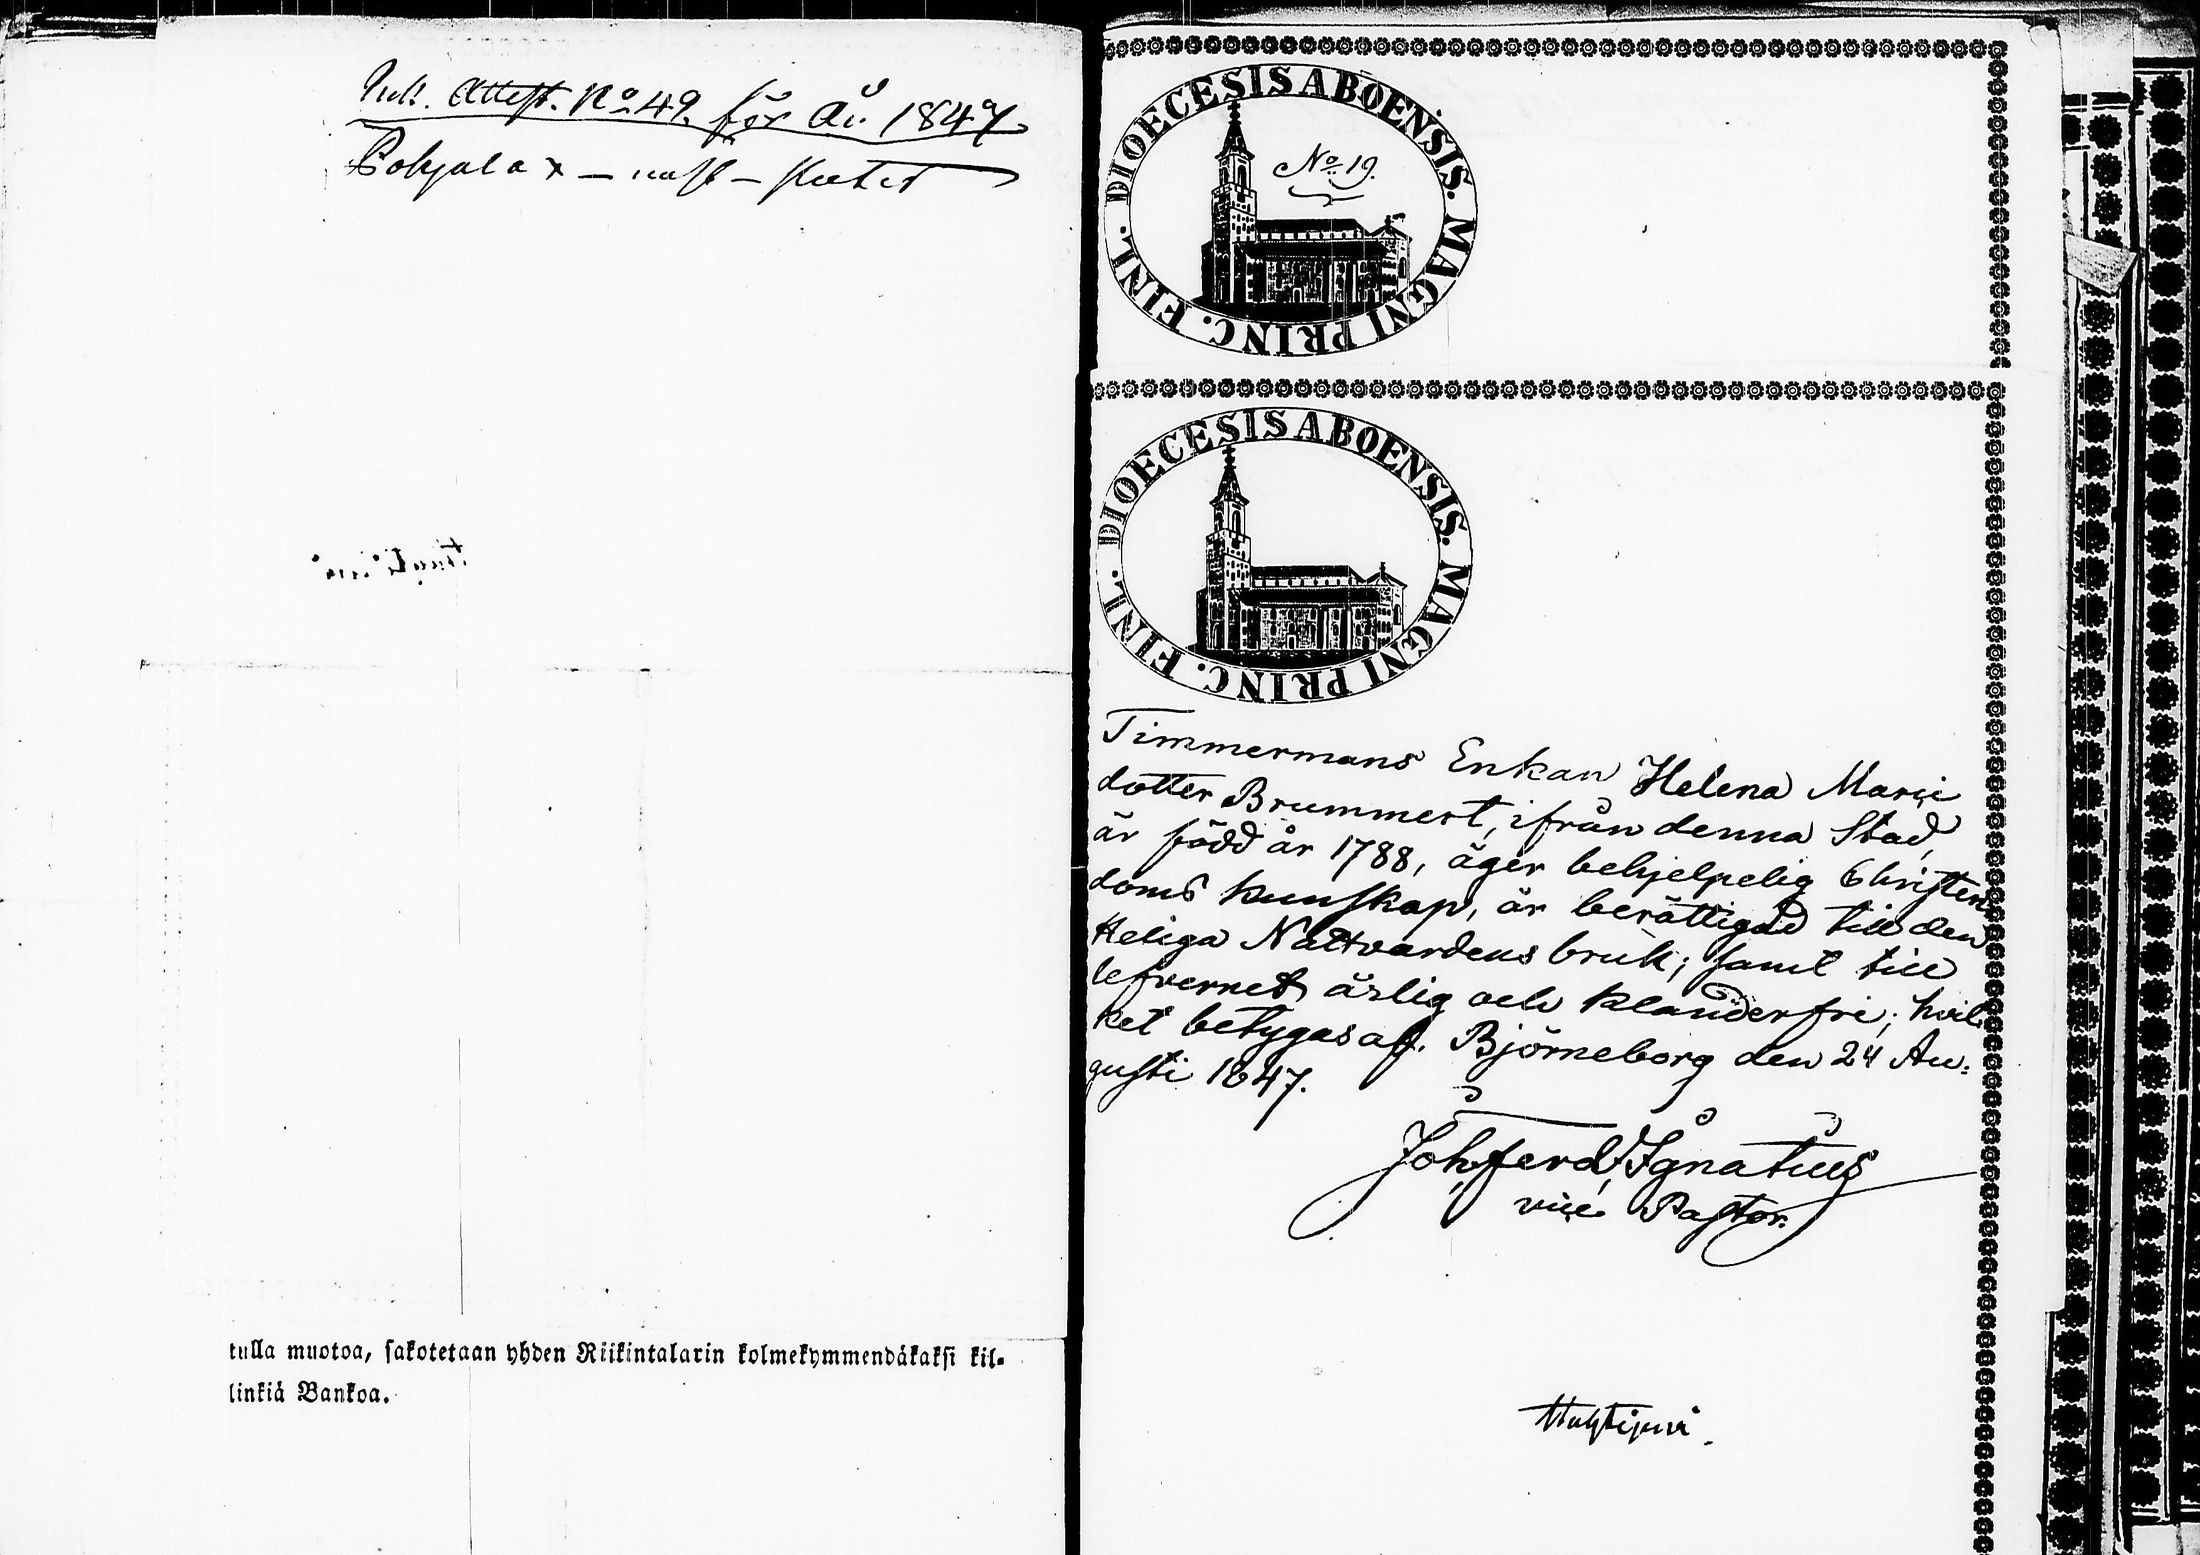 Ink. Attest. No 49. för År 1847
Pohjala
tulla muotoa, sakotetaan yhden Riikintalarin kolmekymmendäkaksi kil-
linkiä Bankoa.
DIOECESIS ABOENSIS. MAGNI PRINC. FINL.
No 19.
DIOECESIS ABOENSIS. MAGNI PRINC. FINL.
Timmermans Enkan Helena Marie
dotter Brummert, ifrån denna Stad,
är född år 1788, äger behjelpelig Christen
doms kunskap, är berättigad till den
Heliga Nattvardens bruk; samt till
lefvernet ärlig och klanderfri; hvil
ket betygas af. Björneborg den 24 Au-
gusti 1847.
Joh. Ferd. Ignatius
vice Pastor.